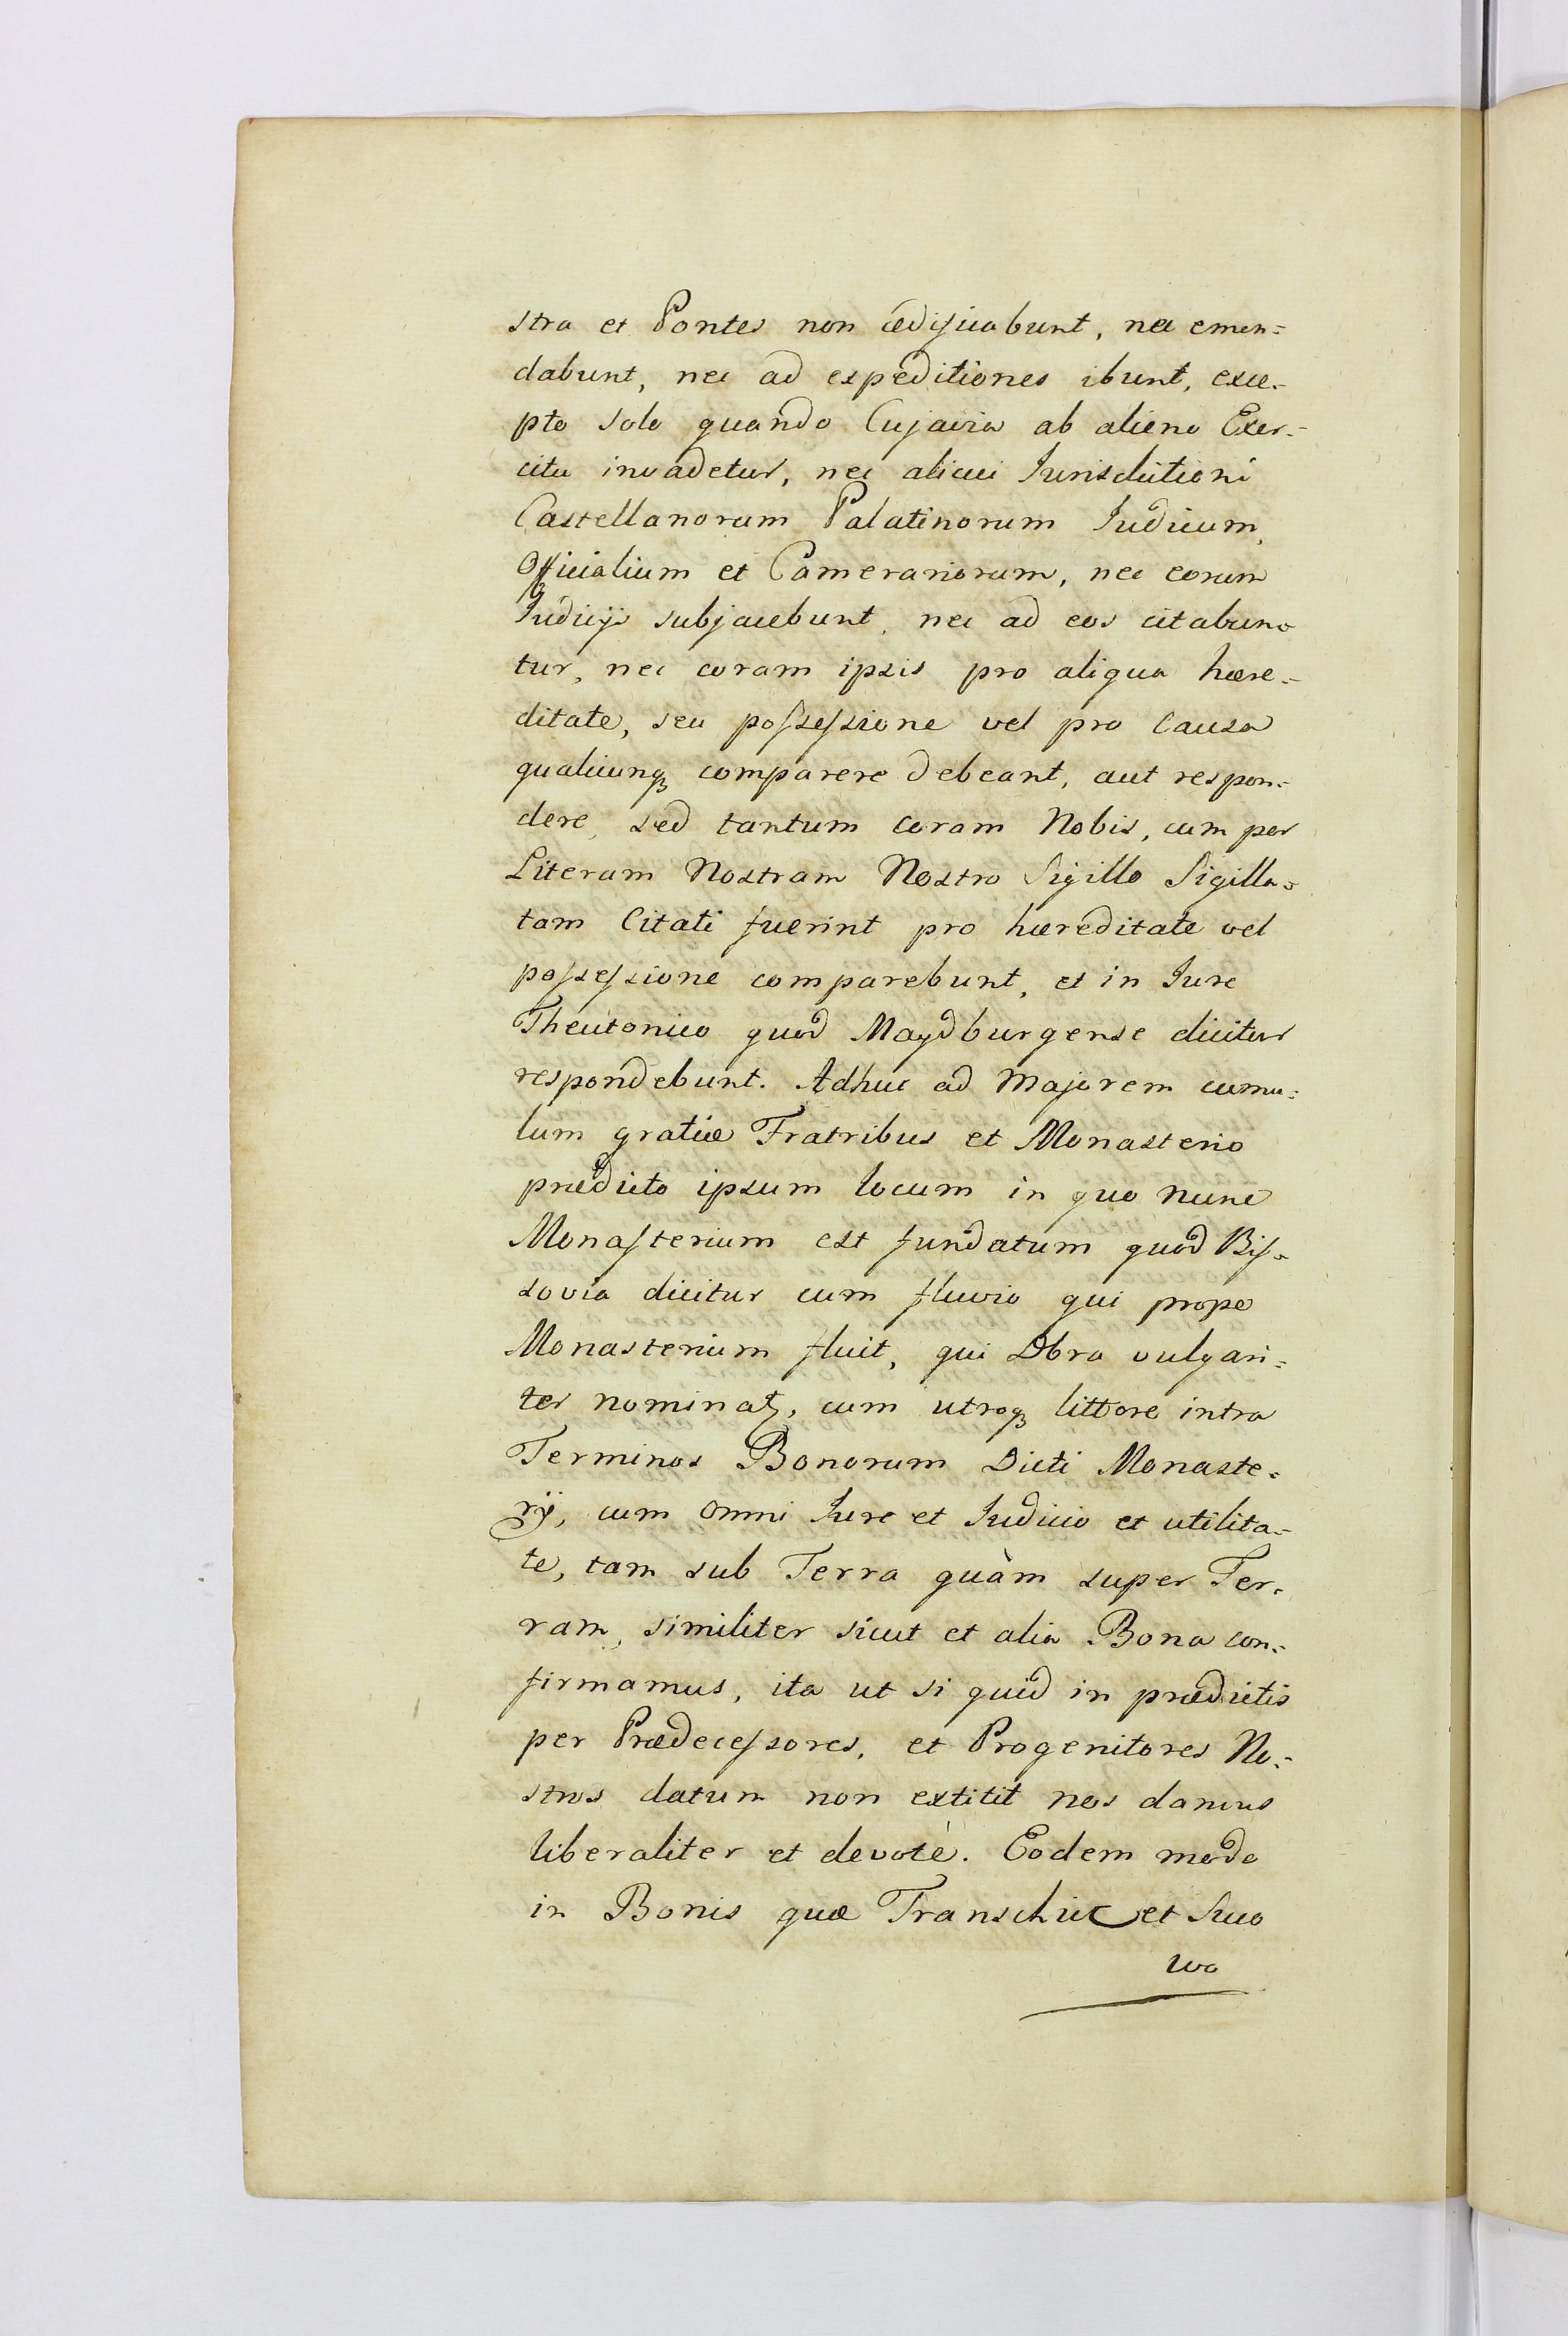 stra et Pontes non ædificabunt, nec emen=
dabunt, nec ad expeditiones ibunt, exce=
pto solo quando Cujavia ab alieno Exer=
citu invadetur, nec alicui Jurisdictioni
Castellanorum Palatinorum Judicum,
Officialium et Camerariorum, nec eorum
Judicijs subjacebunt, nec ad eos citabun=
tur, nec coram ipsis pro aliqua hære=
ditate, seu possessione vel pro Causa
qualicunqꝫ comparere debeant, aut respon=
dere, sed tantum coram Nobis, cum per
Literam Nostram Nostro Sigillo Sigilla=
tam Citati fuerint pro hæreditate vel
possessione comparebunt, et in Jure
Theutonico quod Maydburgense dicitur
respondebunt. Adhuc ad Majorem cumu=
lum gratiæ Fratribus et Monasterio
prædicto ipsum locum in quo nunc
Monasterium est fundatum quod Bis=
sovia dicitur cum fluvio qui prope
Monasterium fluit, qui Dbra vulgari=
ter nominatꝫ, cum utroqꝫ littore intra
Terminos Bonorum Dicti Monaste=
rij, cum omni Jure et Judicio et utilita=
te, tam sub Terra quàm super Ter=
ram, similiter sicut et alia Bona con=
firmamus, ita ut si quid in prædictis
per Prædecessores, et Progenitores No=
stros datum non extitit nos damus
liberaliter et devotè. Eodem modo
in Bonis quæ Transchic et Suo
wo